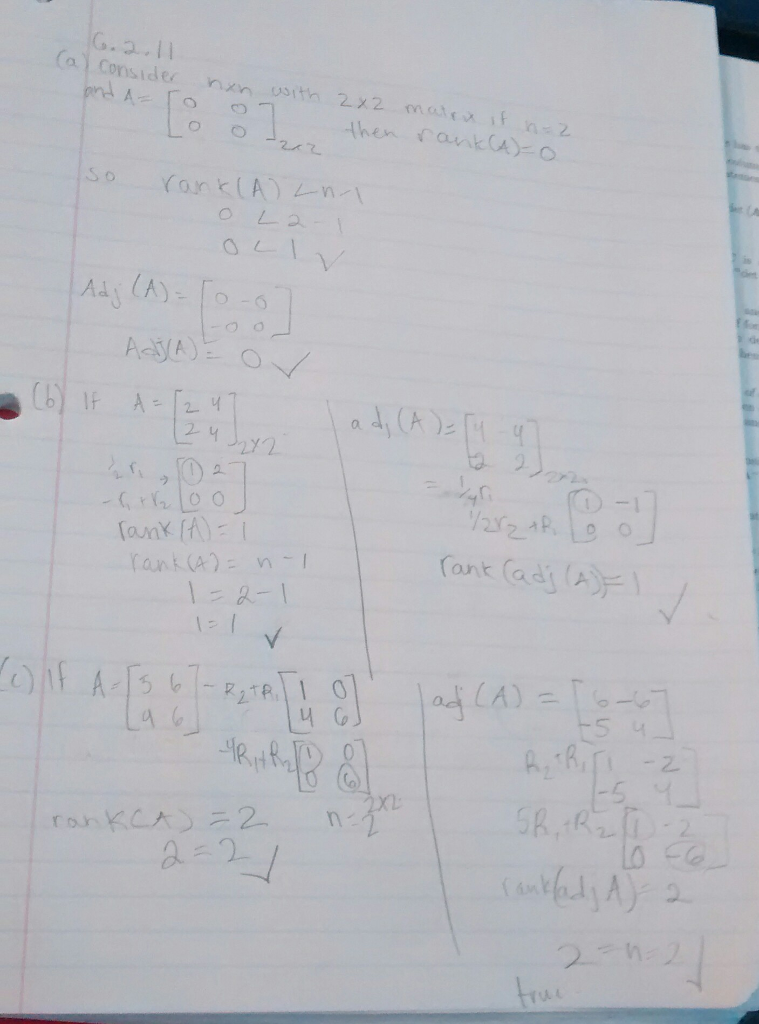 6.2.11
(a) consider nxn with 2x2 matrix if n=2
and A = [0 0
0 0]2x2 then rank(A)=0
so rank(A) < n-1
0 < 2-1
0 < 1 ✓
Adj (A) = [0 -0
-0 0]
Adj(A) = 0 ✓
(b) If A = [2 4
2 4]2x2
1/2 r1 → [1 2
-r1+r2 0 0]
rank(A) = 1
rank(A) = n-1
1 = 2-1
1=1 ✓
adj(A) = [4 -4
2 2]2x2
= 1/4 r1
1/2r2+R1 [1 -1
0 0]
rank(adj(A))=1 ✓
(c) If A = [5 6
4 6] -R2+R1 [1 0
4 6]
-4R1+R2 [1 0
0 6]2x2
rank(A) = 2 n=2
2 = 2 ✓
adj(A) = [6 -6
-5 4]
R2+R1 [1 -2
-5 4]
5R1+R2 [1 -2
0 -6]
rank(adj A) = 2
2 = n = 2 ✓
true